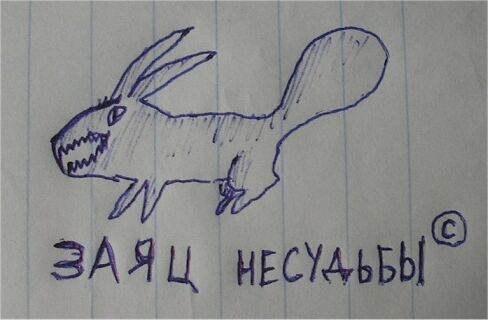 ЗАЯЦ НЕСУДЬБЫ ©